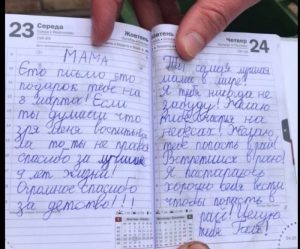 23
Середа
Жовтень
МАМА
Єто письмо это
подарок тебе на
8 марта! Если
ты думаеш что
зря меня воспитывала
за то ты не права
спасибо за лучшие
9 лет жизни!
Огромное спасибо
за детство!!!
Четвер
24
Ты самая лучшая
мама в мире!
Я тебя никогда не
забуду! Желаю
на
небесах! Желаю
тебе попасть в рай!
Встретимся в раю!
Я постараюсь
хорошо себя вести
чтобы попасть в
рай! Целую
тебя Галя!